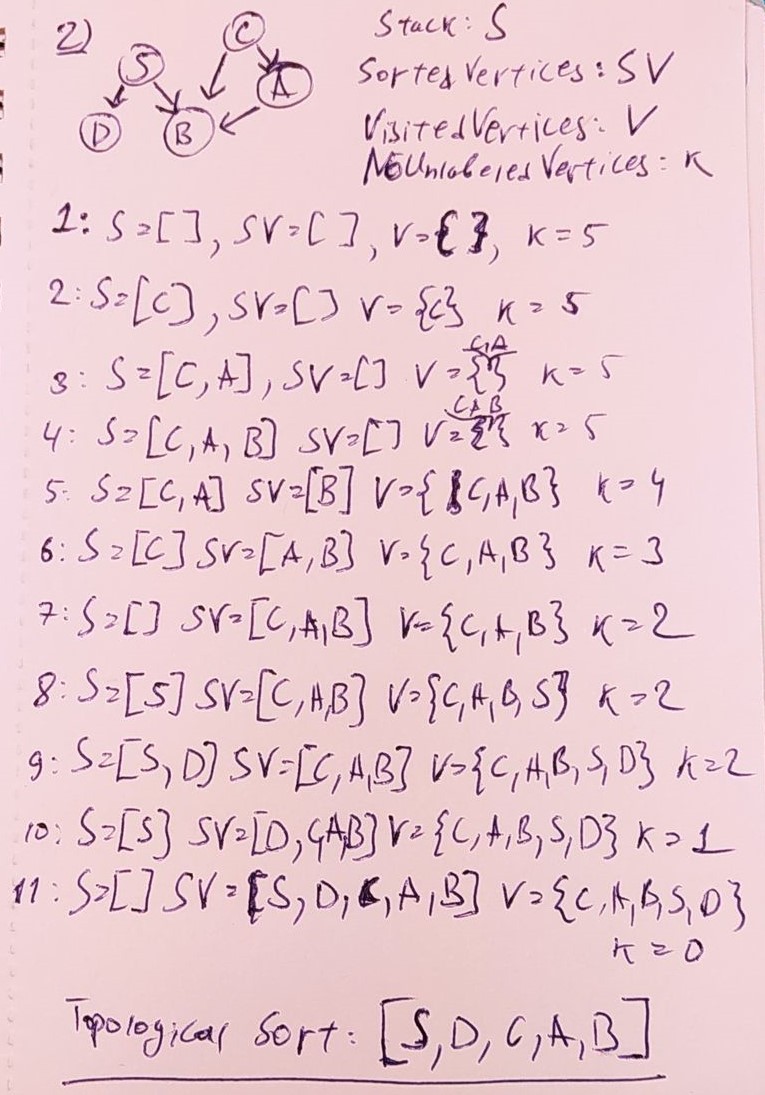 2)
S
C
A
D
B
Stack: S
Sorted Vertices: SV
Visited Vertices: V
NoUnlabeled Vertices: K
1: S=[], SV=[], V={}, K=5
2: S=[C], SV=[] V={C} K=5
3: S=[C,A], SV=[] V={C,A} K=5
4: S=[C,A,B] SV=[] V={C,A,B} K=5
5: S=[C,A] SV=[B] V={C,A,B} K=4
6: S=[C] SV=[A,B] V={C,A,B} K=3
7: S=[] SV=[C,A,B] V={C,A,B} K=2
8: S=[S] SV=[C,A,B] V={C,A,B,S} K=2
9: S=[S,D] SV=[C,A,B] V={C,A,B,S,D} K=2
10: S=[S] SV=[D,C,A,B] V={C,A,B,S,D} K=1
11: S=[] SV=[S,D,C,A,B] V={C,A,B,S,D}
K=0
Topological Sort: [S,D,C,A,B]